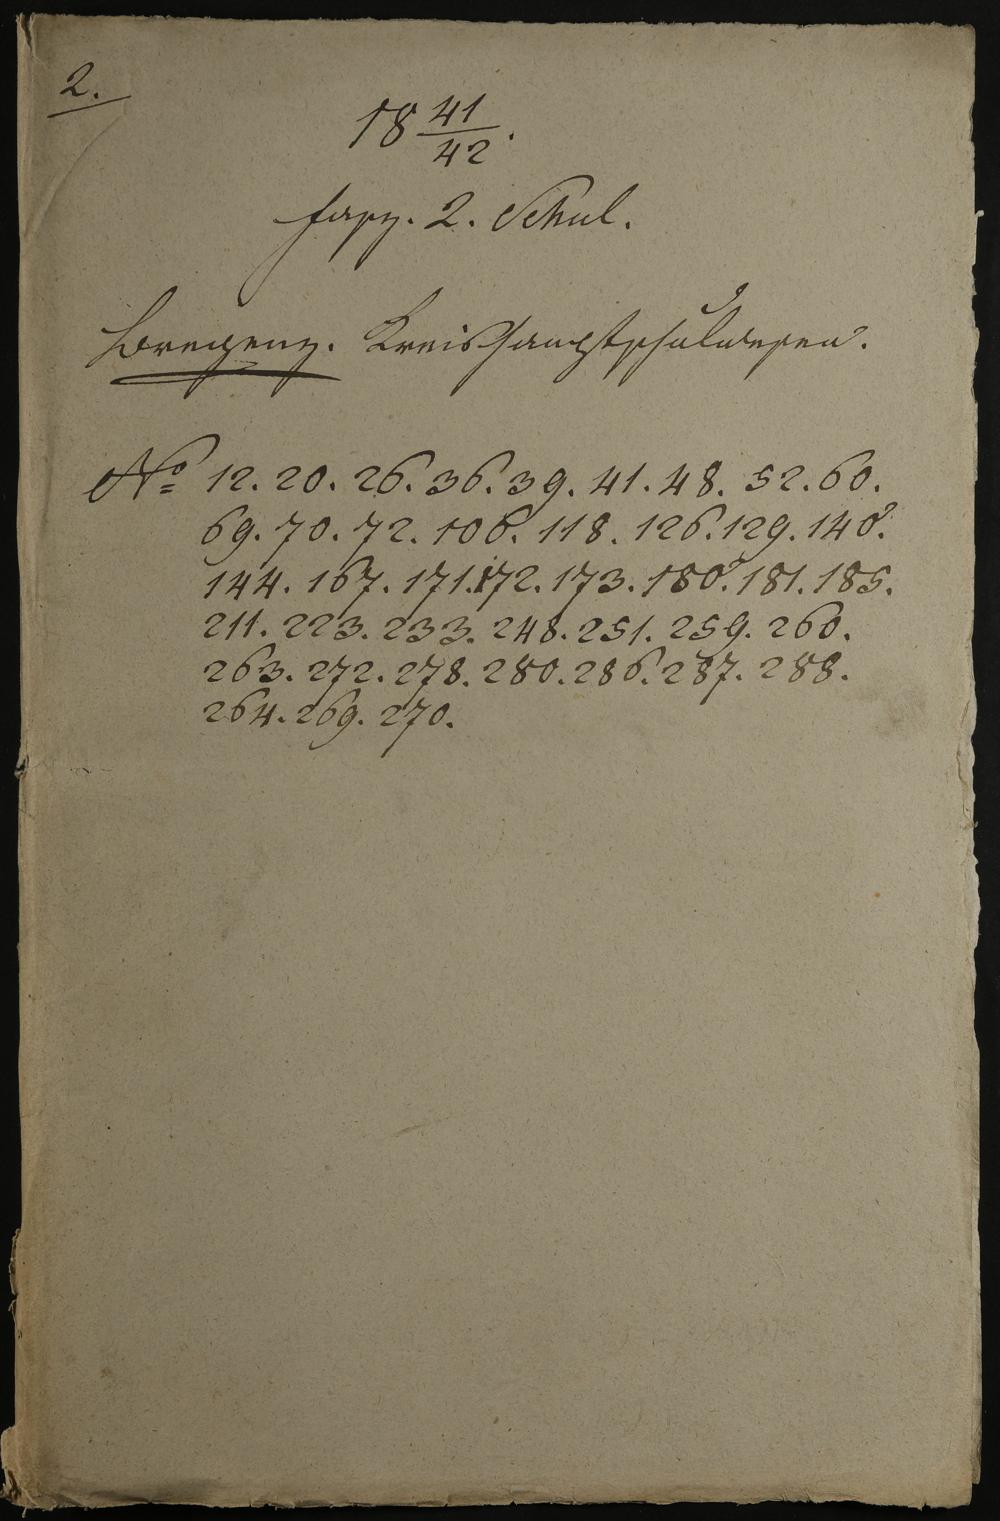 2.
18 41/42.
Fasz. 2. Schul.
Bregenz. Kreishauptschulwesen.
No 12. 20. 26. 36. 39. 41. 48. 52. 60.
69. 70. 72. 106. 118. 126. 129. 140.
144. 167. 171. 172. 173. 180. 181. 185.
211. 223. 233. 248. 251. 259. 260.
263. 272. 278. 280. 286. 287. 288.
264. 269. 270.